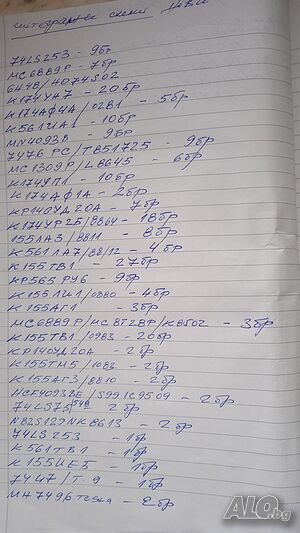 интегрални схеми нови
74LS253 - 9бр
MC6889P - 7бр
6Н4В/HD74S02
К174УН7 - 20бр
К174АФ4А/02В1 - 5бр
К561ИА1 - 10бр
MN4093B - 9бр
7476PC/TB51725 - 9бр
MC1309P/L8645 - 6бр
К174УП1 - 10бр
К174АФ1А - 2бр
КР140УД20А - 7бр
К174УР2Б/8864 - 18бр
155ЛА3/8811 - 8бр
К561ЛА7/88/12 - 4бр
К155ТВ1 - 27бр
КР565РУ6 - 9бр
К155ЛИ1/0880 - 4бр
К155АГ1 - 3бр
MC6889P/MC8T28P/K8502 - 3бр
К155ТВ1/0983 - 20бр
КР140УД20А - 2бр
К155ТМ5/1083 - 2бр
К155АГ3/8810 - 2бр
HCF4093BE/S991C9509 - 2бр
74LS75 - 2бр
N82S129NK8613 - 2бр
74LS253 - 1бр
К561ТВ1 - 1бр
К155ИЕ5 - 1бр
7447/T9 - 1бр
MH7496 TESLA - 2бр
ALO.bg